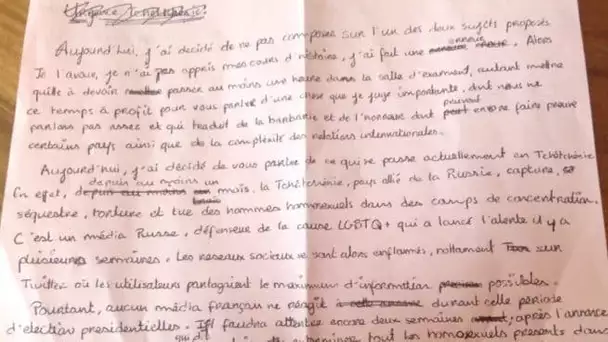 Urgence Tchétchénie.
Aujourd'hui, j'ai décidé de ne pas composer sur l'un des deux sujets proposés
Je l'avoue, je n'ai pas appris mes cours d'histoire, j'ai fait une impasse. Alors
quitte à devoir passer au moins une heure dans la salle d'examen, autant mettre
ce temps à profit pour vous parler d'une cause que je juge importante, dont nous ne
parlons pas assez et qui traduit de la barbarie et de l'horreur dont peuvent encore faire preuve
certains pays ainsi que de la complexité des relations internationales.
Aujourd'hui, j'ai décidé de vous parler de ce qui se passe actuellement en Tchétchénie
En effet, depuis au moins un mois, la Tchétchénie, pays allié de la Russie, capture,
séquestre, torture et tue des hommes homosexuels dans des camps de concentration.
C'est un média Russe, défenseur de la cause LGBTQ+ qui a lancé l'alerte il y a
plusieurs semaines. Les réseaux sociaux se sont alors enflammés, nottament sur
Twitter où les utilisateurs partagaient le maximum d'information possibles.
Pourtant, aucun média français ne réagit à durant cette période
d'élection présidentielles. Il faudra attendre encore deux semaines, après l'annonce
tout les homosexuels présents dans